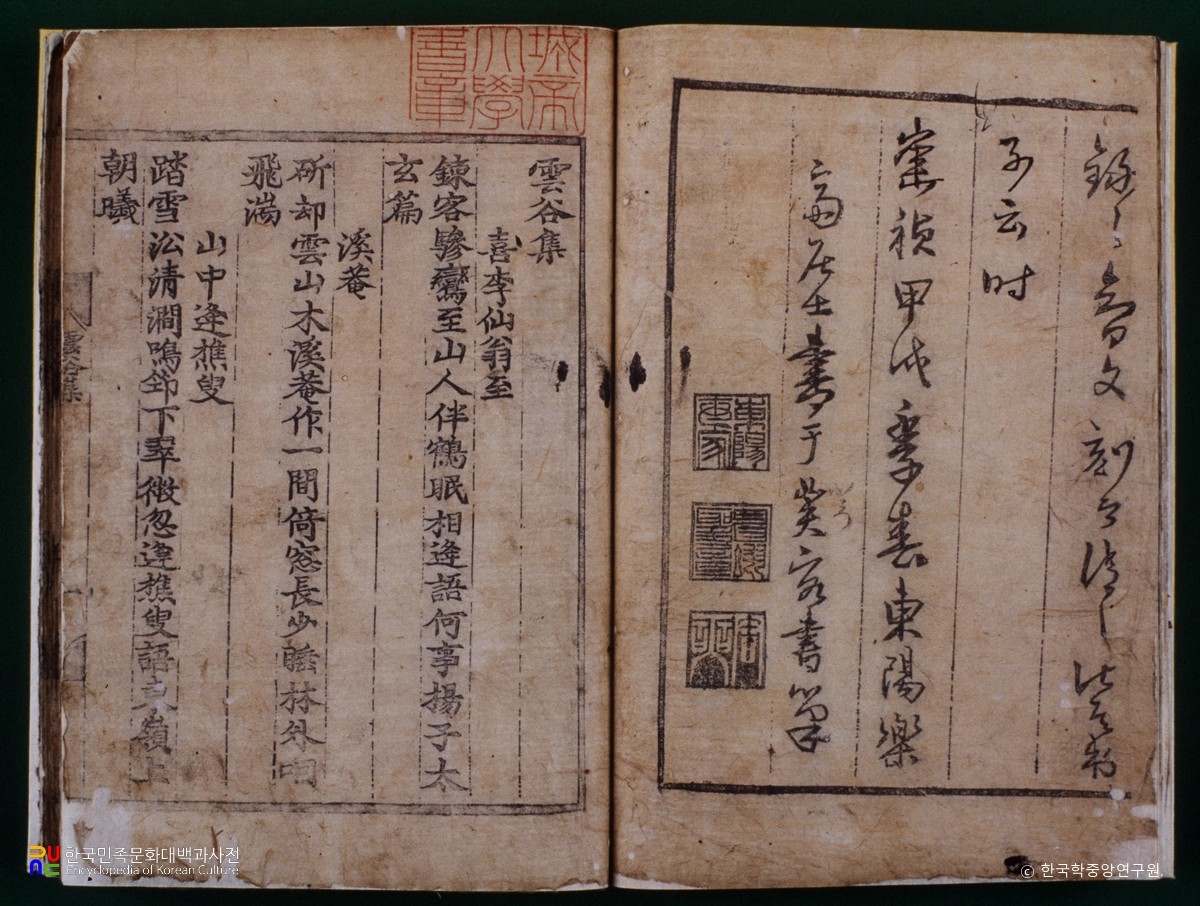 子云时
崇禎甲戌季春東陽樂
居士書于
城帝
大學
書章
雲谷集
喜李仙翁至
鍊客驂鸞至山人伴鶴眠相逢語何事揚子太
玄篇
溪菴
斫却雲山木溪菴作一間倚窓長少睡林外咽
飛湍
山中逢樵叟
踏雪㳂清澗鳴筇下翠微忽逢樵叟語嶺上
朝曦
雲谷集
한국민족문화대백과사전
Encyclopedia of Korean Culture
© 한국학중앙연구원